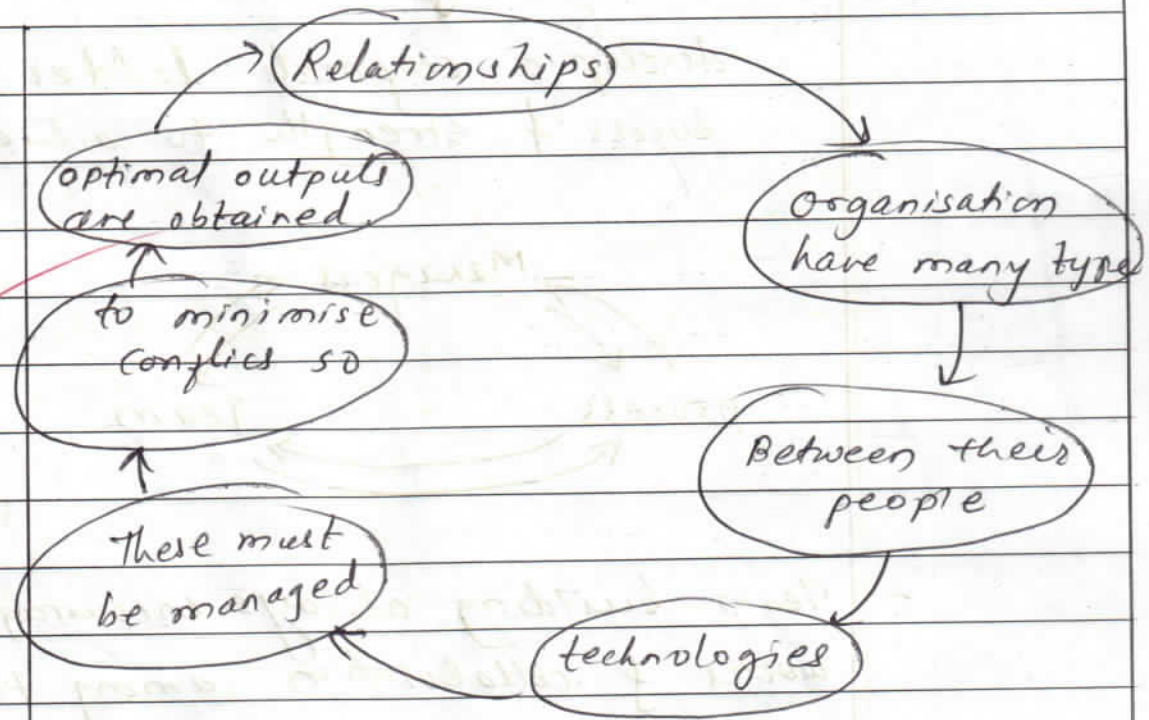 Relationships
Organisation
have many type
Between their
people
technologies
These must
be managed
to minimise
conflics so
optimal outputs
are obtained.